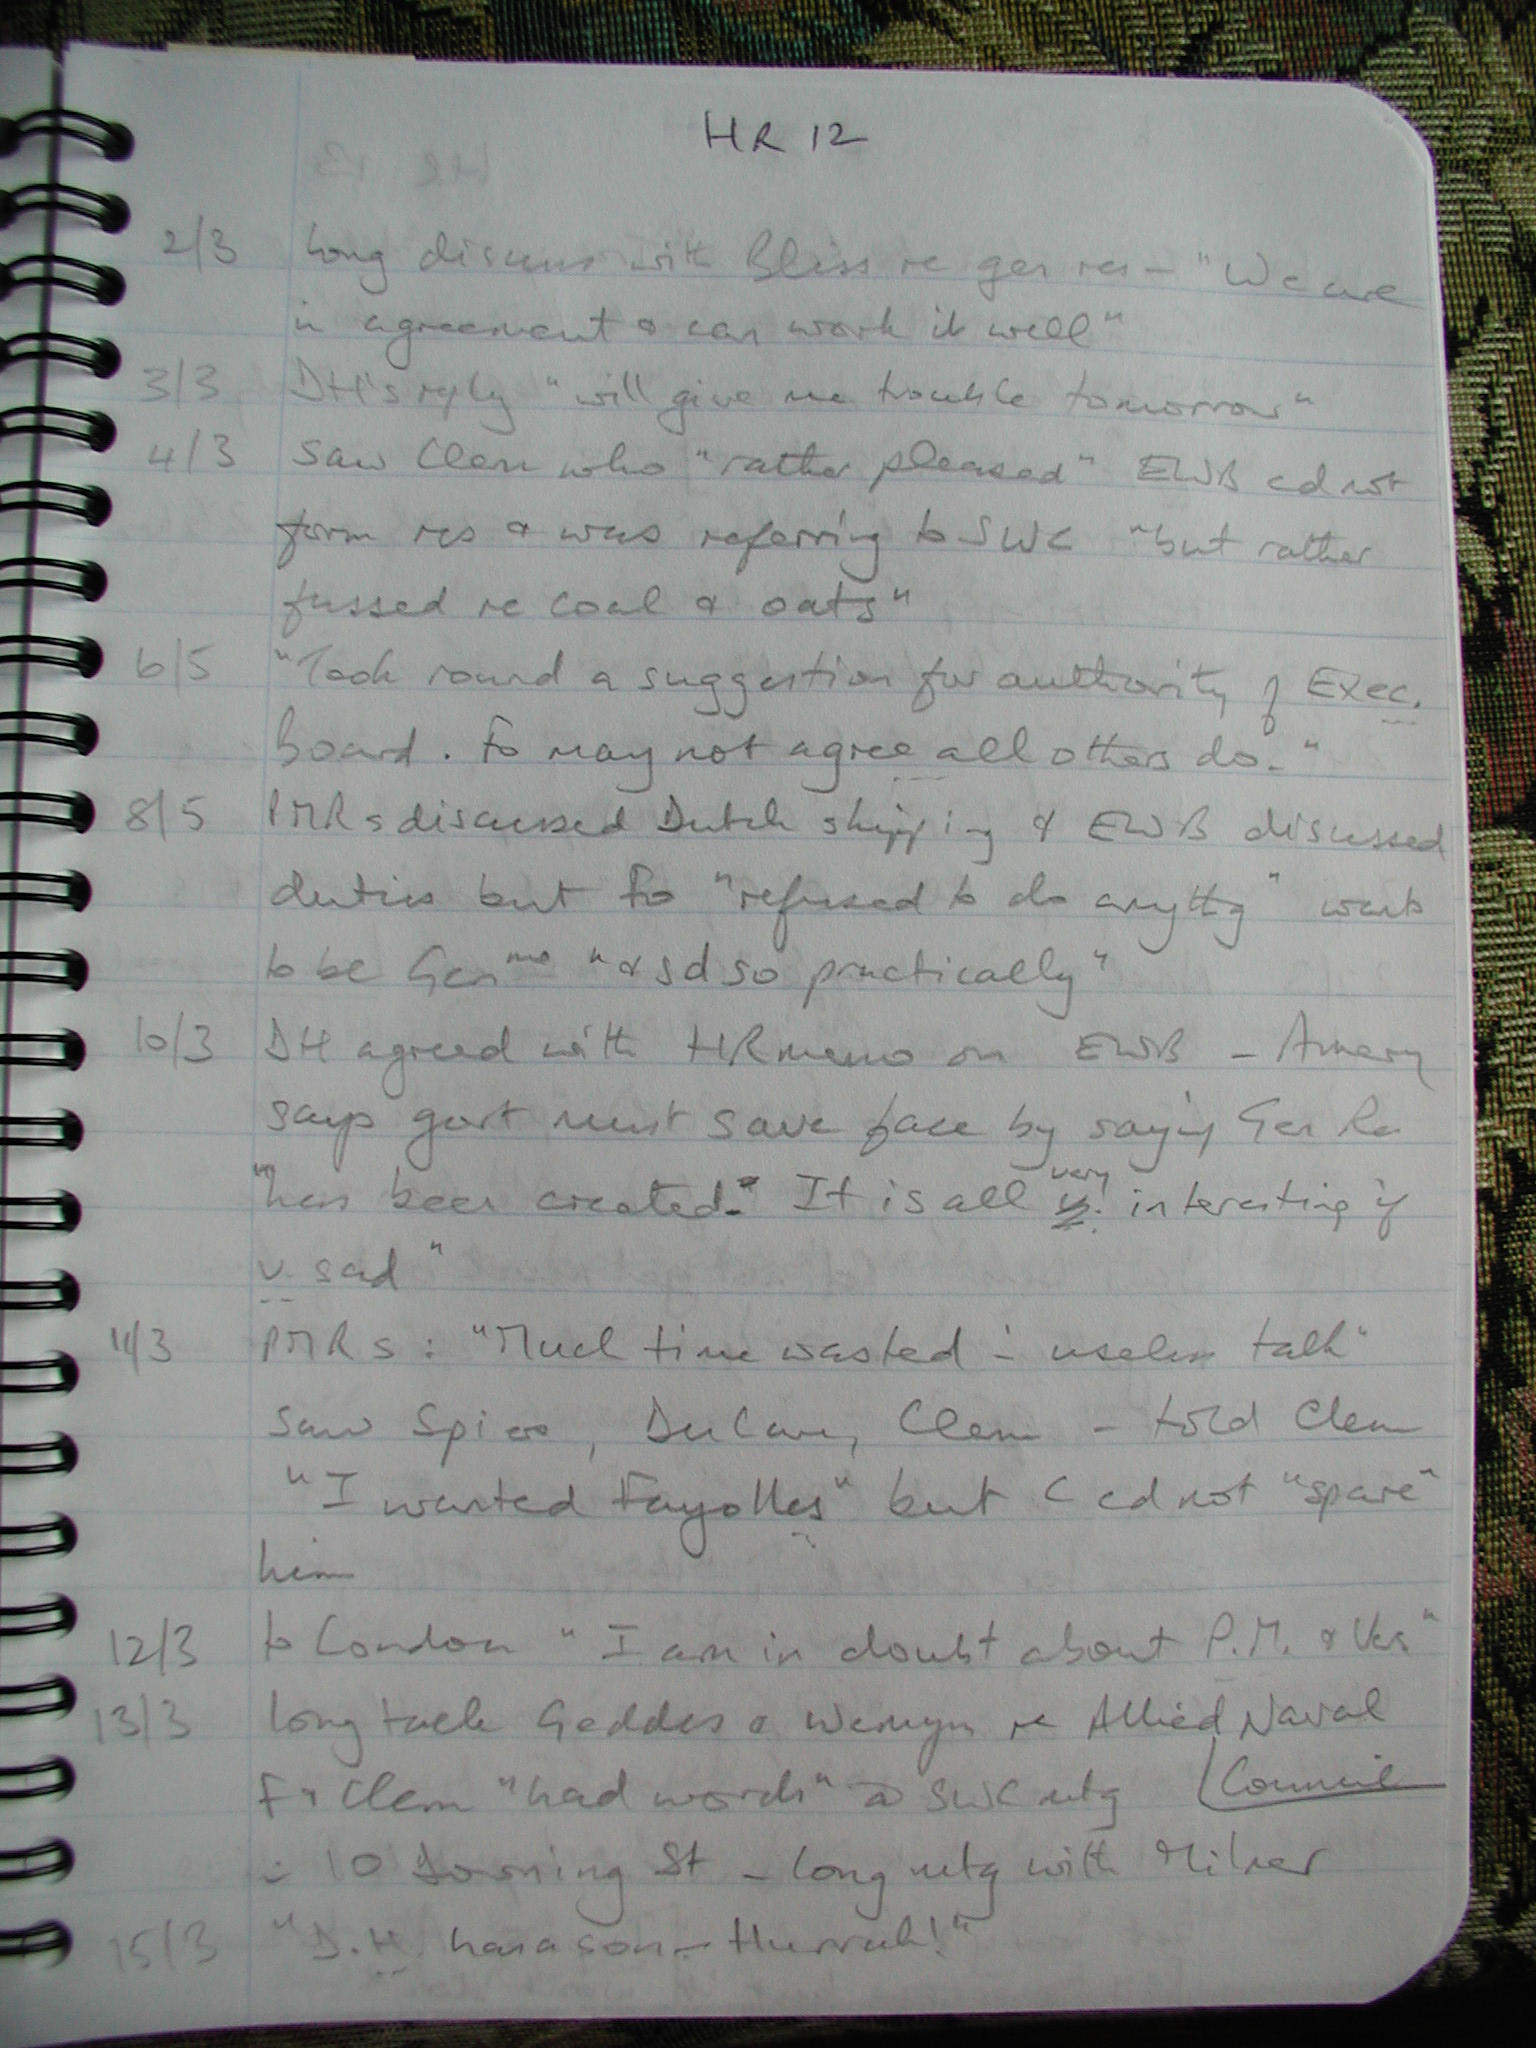 HR 12
2/3 Long discuss with Bliss re gen res – "We are
in agreement & can work it well"
3/3 DH's reply "will give me trouble tomorrow"
4/3 Saw Clem who "rather pleased" EWB cd not
form res & was referring to SWC "but rather
fussed re coal & oats"
6/5 "Took round a suggestion for authority of Exec.
Board. Fo may not agree all others do."
8/5 PMRs discussed Dutch shipping & EWB discussed
duties but Fo "refused to do anythg" wants
to be Gen "& sd so practically"
10/3 DH agreed with HR memo on EWB – Amery
says govt must save face by sayig Gen Re
"has been created." It is all very interesting if
v. sad"
11/3 PMRs: "Much time wasted in useless talk"
Saw Spiers, DuCane, Clem – told Clem
"I wanted Fayolles" but C cd not "spare"
him
12/3 to London "I am in doubt about P.M. & Ves"
13/3 Long talk Geddes & Wemyss re Allied Naval
Council
F & Clem "had words" @ SWC mtg
in 10 Downing St – long mtg with Milner
15/3 "D.H. has a son – Hurrah!"